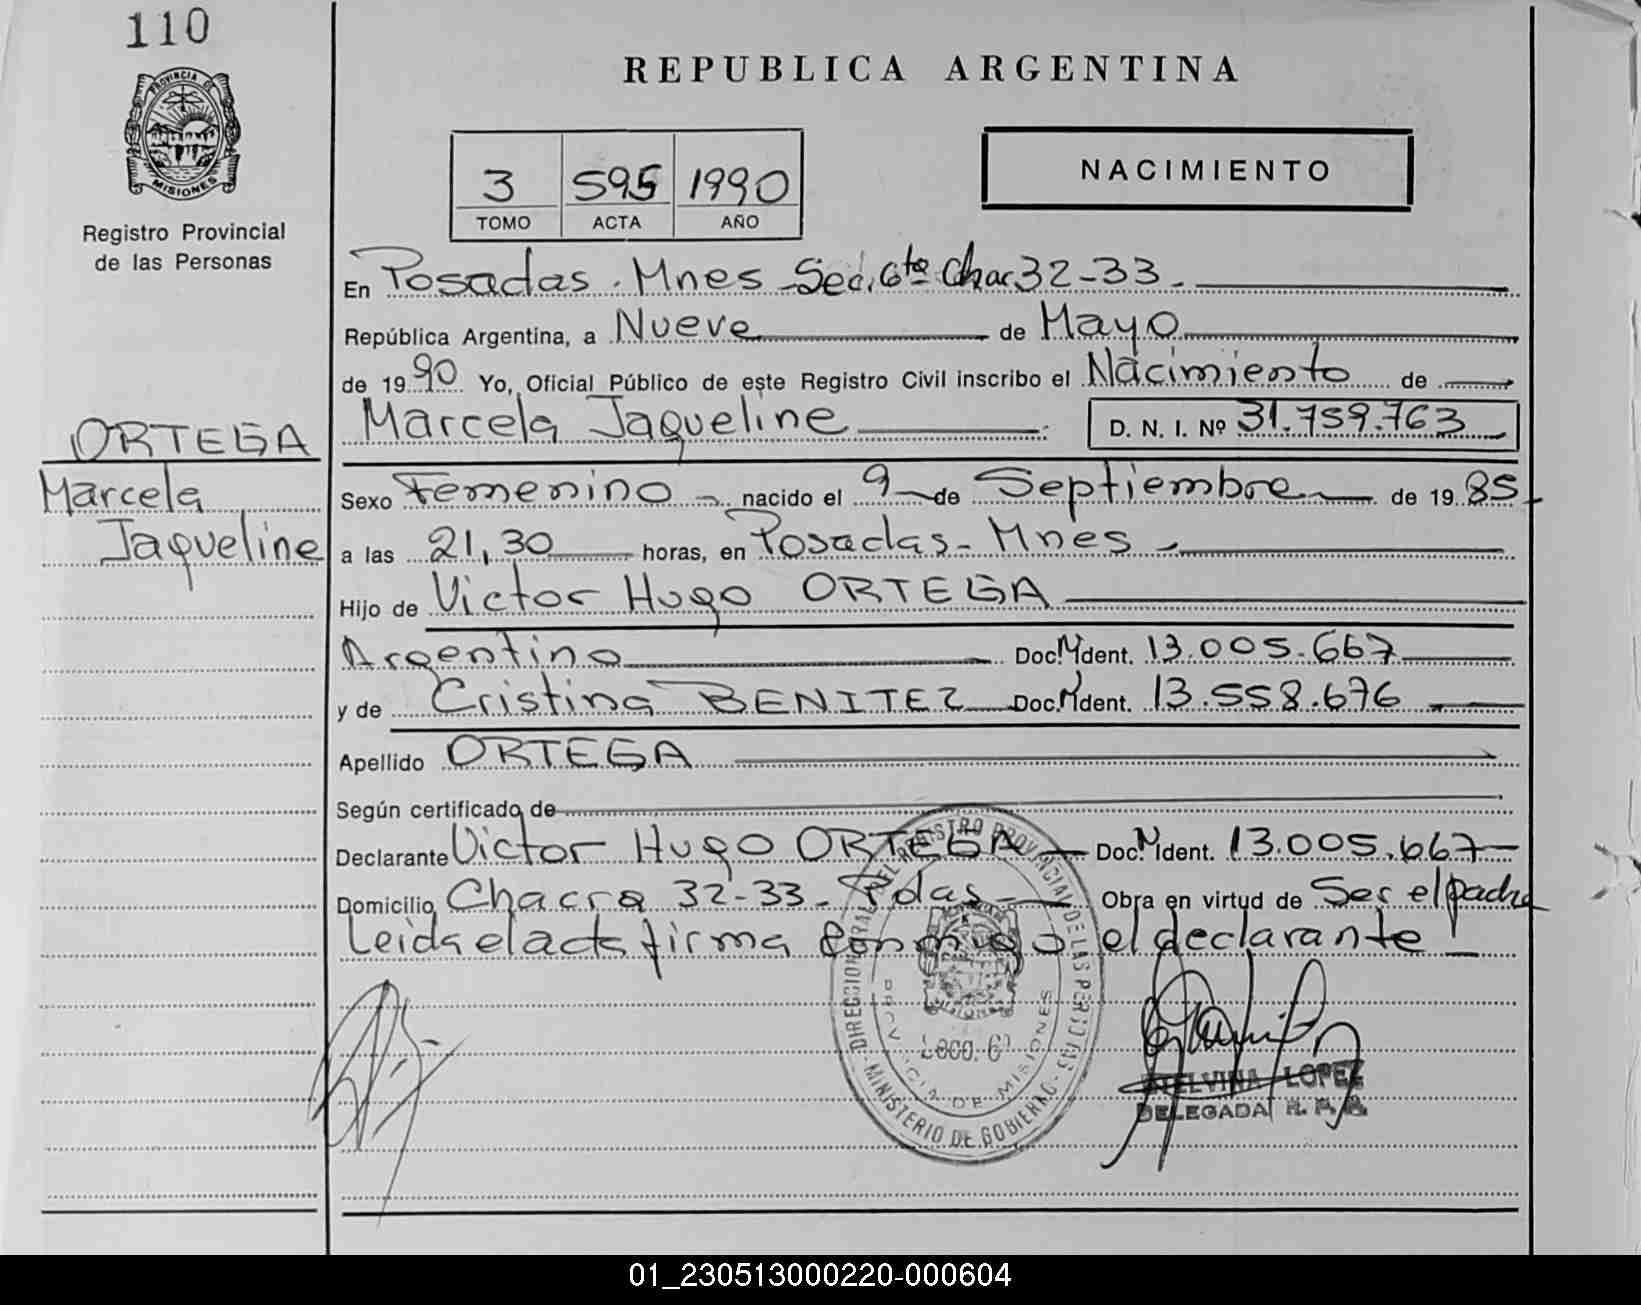 110
PROVINCIA DE
MISIONES
Registro Provincial
de las Personas
REPUBLICA ARGENTINA
3 595 1990
TOMO ACTA AÑO
NACIMIENTO
En Posadas. Mnes - Sec. 6ta Chac 32-33.
República Argentina, a Nueve de Mayo
de 1990 Yo, Oficial Público de este Registro Civil inscribo el Nacimiento de
Marcela Jaqueline D. N. I. Nº 31.759.763
ORTEGA
Marcela
Jaqueline
Sexo Femenino nacido el 9 de Septiembre de 1985
a las 21,30 horas, en Posadas - Mnes
Hijo de Victor Hugo ORTEGA
Argentino Doc. N Ident. 13.005.667
y de Cristina BENITEZ Doc. N Ident. 13.558.676
Apellido ORTEGA
Según certificado de
Declarante Victor Hugo ORTEGA Doc. N Ident. 13.005.667
Domicilio Chacra 32-33. Pdas Obra en virtud de Ser el padre
Leida el acta firma conmigo el declarante
DIRECCION GRAL. DEL REGISTRO PROVINCIAL DE LAS PERSONAS
MINISTERIO DE GOBIERNO
PROVINCIA DE MISIONES
ETELVINA LOPEZ
DELEGADA R. P. P.
01_230513000220-000604